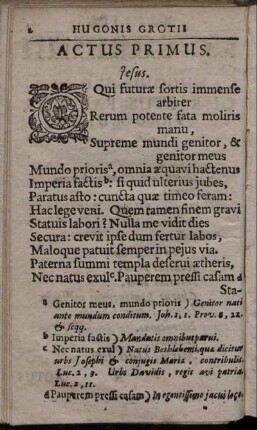 2 HUGONIS GROTII
ACTUS PRIMUS.
Jesus.
O Qui futuræ sortis immense
arbiter
Rerum potente fata moliris
manu,
Supreme mundi genitor, &
genitor meus
Mundo prioris a, omnia æquavi hactenus
Imperia factis b: si quid ulterius jubes,
Paratus asto: cuncta quæ timeo feram:
Hac lege veni. Quem tamen finem gravi
Statuis labori? Nulla me vidit dies
Secura: crevit ipse dum fertur labos,
Maloque patuit semper in pejus via.
Paterna summi templa deserui ætheris,
Nec natus exul c. Pauperem pressi casam d
Sta-
a Genitor meus, mundo prioris) Genitor nati
ante mundum conditum. Joh. 1, 1. Prov. 8, 22,
& seqq.
b Imperia factis) Mandatis omnibus parui.
c Nec natus exul) Natus Bethlehemi, quæ dicitur
urbs Josephi & conjugis Mariæ, contribulis.
Luc. 2, 3. Urbs Davidis, regis avi patria
Luc. 2, 11.
d Pauperem pressi casam) In egentissimo jacui